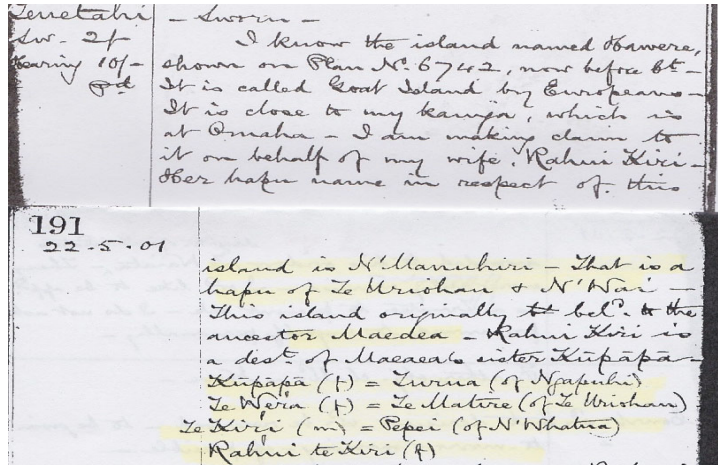 Tenetahi - Sworn -
Sw. 2/- I know the island named Hawere,
Hearing 10/- shown on Plan No. 6742, now before Ct -
pd It is called Goat Island by Europeans -
It is close to my kainga, which is
at Omaha - I am making claim to
it on behalf of my wife, Rahui Kiri -
Her hapu name in respect of this
191
22-5-01
island is N'Manuhiri - That is a
hapu of Te Uriohau & N'Wai -
This island originally bel. to the
ancestor Maeaea - Rahui Kiri is
a dest. of Maeaea's sister Kūpāpā -
Kūpāpā (f) = Turua (of Ngapuhi)
Te Wera (f) = Te Matire (of Te Uriohau)
Te Kiri (m) = Pepei (of N'Whatua)
Rahui te Kiri (f)